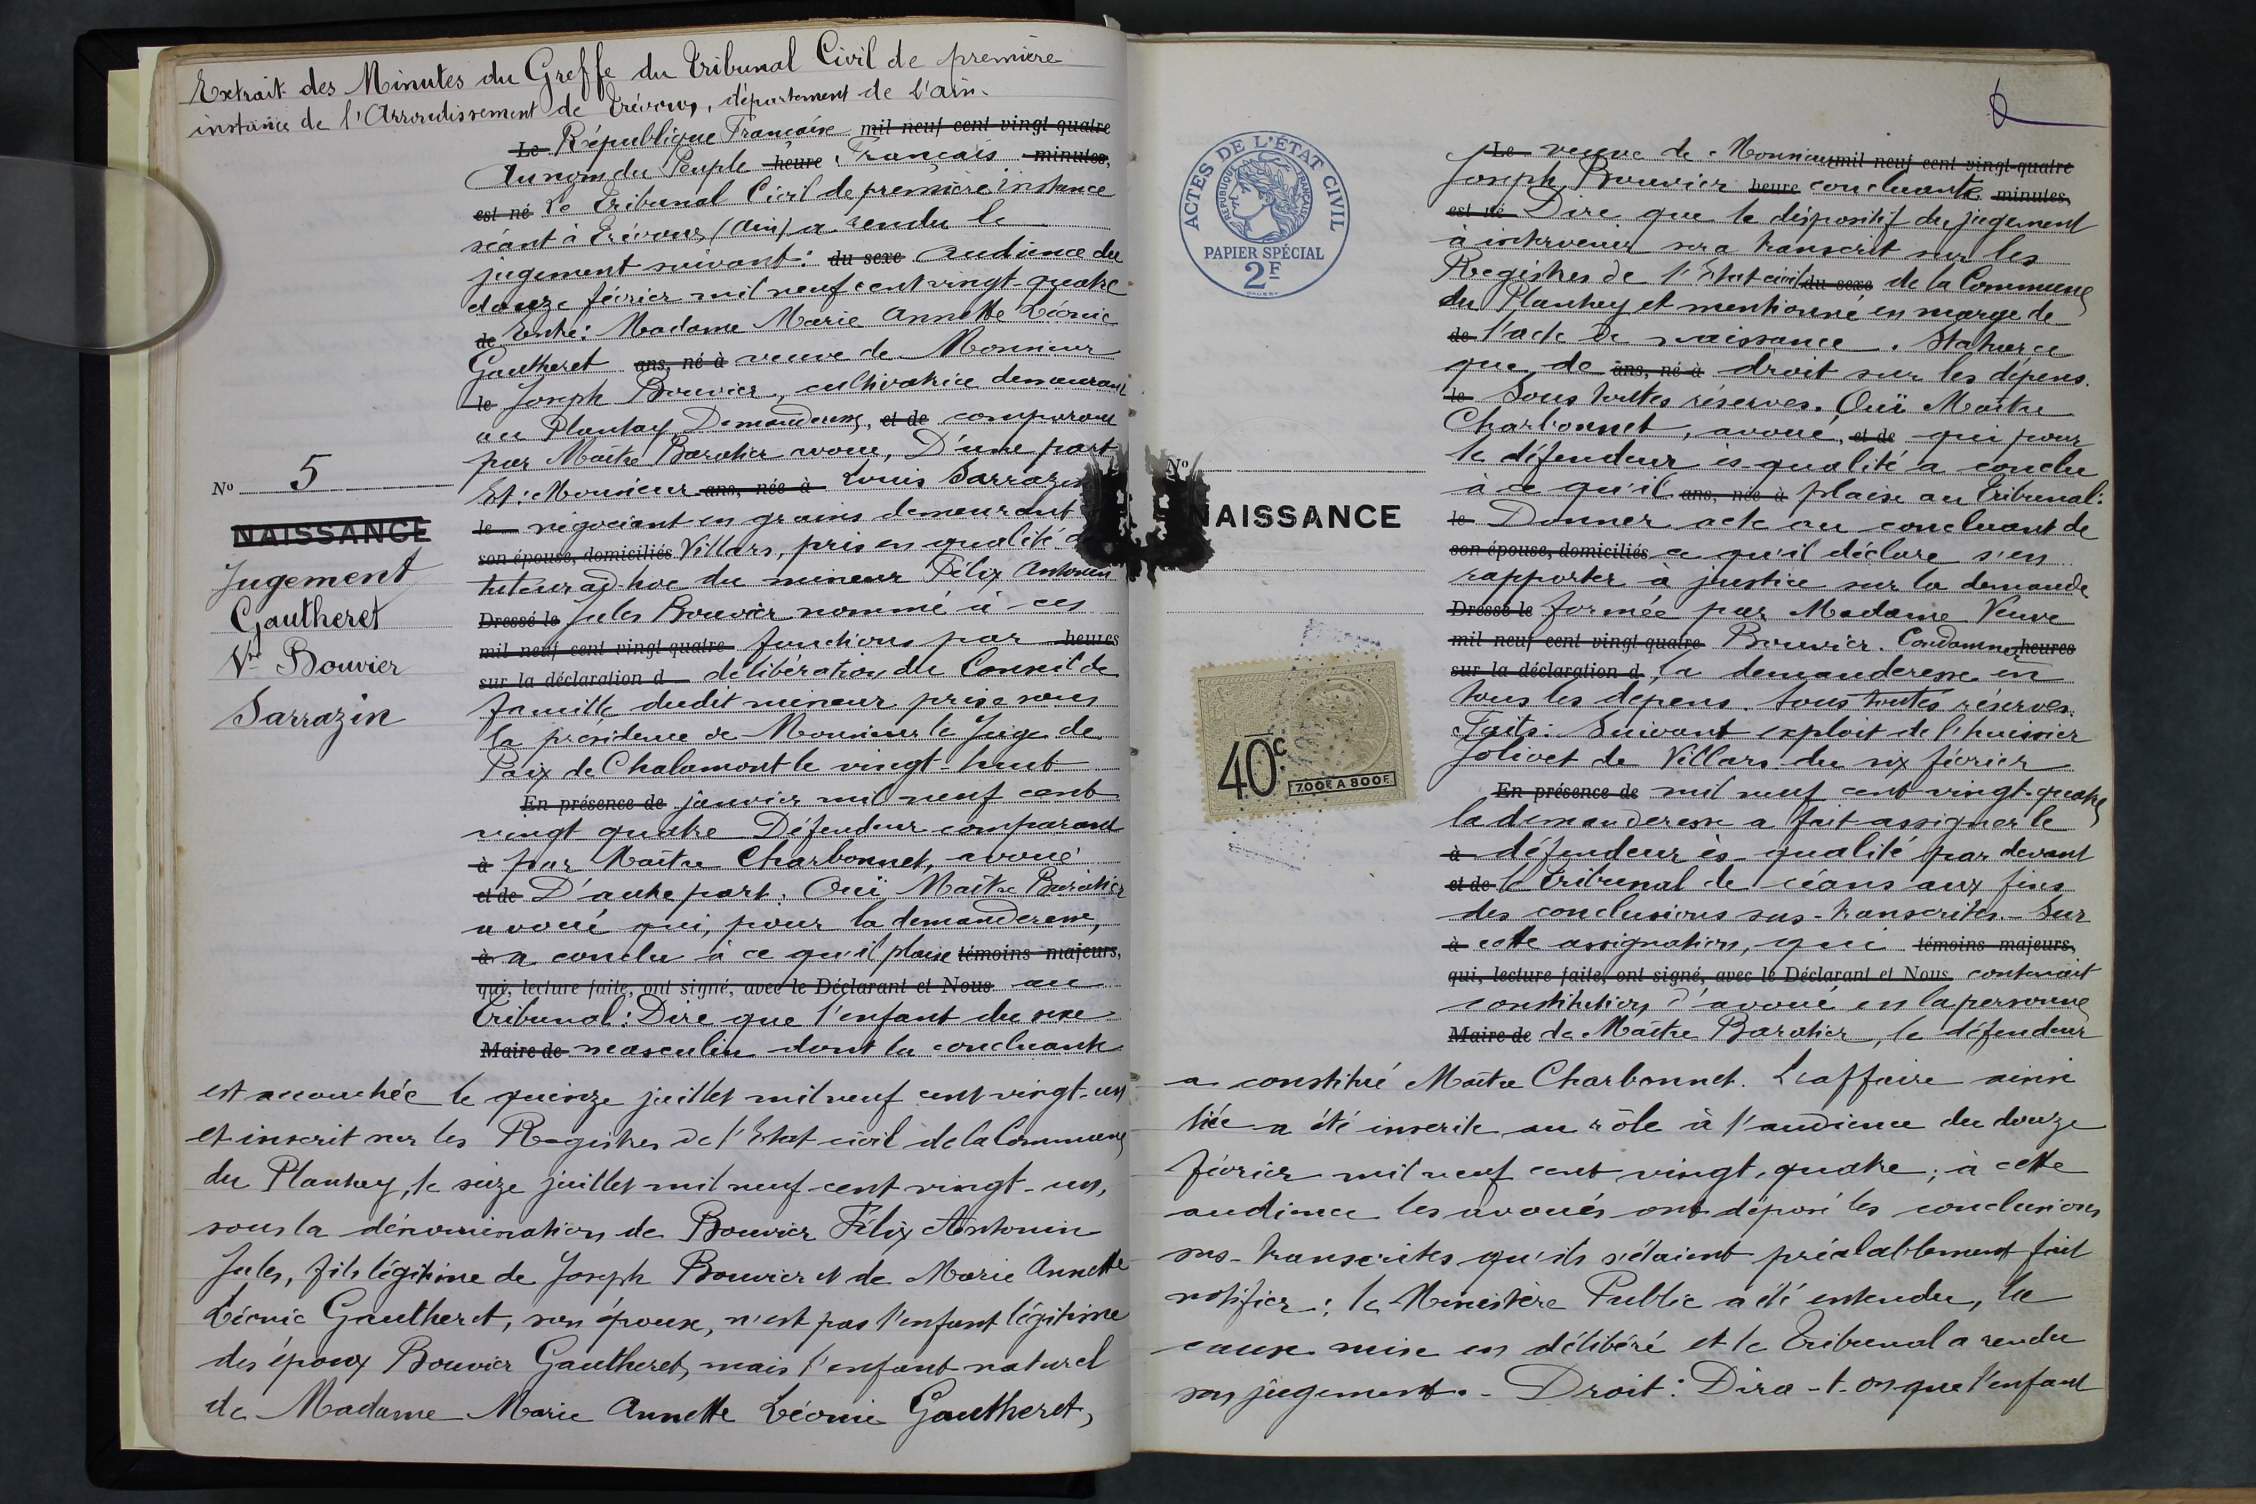 Extrait des Minutes du Greffe du Tribunal Civil de première
instance de l'Arrondissement de Trévoux, département de l'Ain.
Le République Française mil neuf cent vingt quatre
Au nom du Peuple heure Français minutes,
est né le Tribunal Civil de première instance
séant à Trévoux (Ain) a rendu le
jugement suivant : du sexe audience du
douze février mil neuf cent vingt-quatre
de Entre : Madame Marie Annette Léonie
Gautheret ans, né à veuve de Monsieur
le Joseph Bouvier, cultivatrice demeurant
au Plantay Demanderesse, et de comparant
par Maître Baratier avoué, D'une part
Et : Monsieur ans, née à Louis Sarrazin
le négociant en grains demeurant
son épouse, domiciliés Villars, pris en qualité de
tuteur ad-hoc du mineur Félix Antonin
Dressé le Jules Bouvier nommé à ces
mil neuf cent vingt-quatre fonctions par heures
sur la déclaration d délibération du Conseil de
famille dudit mineur prise sous
la présidence de Monsieur le Juge de
Paix de Chalamont le vingt-huit
En présence de janvier mil neuf cent
vingt quatre Défendeur comparant
à par Maître Charbonnet, avoué
et de D'autre part. Ouï Maître Baratier
avoué qui, pour la demanderesse,
à a conclu à ce qu'il plaise témoins majeurs,
qui, lecture faite, ont signé, avec le Déclarant et Nous au
Tribunal : Dire que l'enfant du sexe
Maire de masculin dont la concluante
est accouchée le quinze juillet mil neuf cent vingt-un
et inscrit sur les Registres de l'Etat civil de la Commune
du Plantay, le seize juillet mil neuf cent vingt-un,
sous la dénomination de Bouvier Félix Antonin
Jules, fils légitime de Joseph Bouvier et de Marie Annette
Léonie Gautheret, son épouse, n'est pas l'enfant légitime
des époux Bouvier Gautheret, mais l'enfant naturel
de Madame Marie Annette Léonie Gautheret,
No 5
NAISSANCE
Jugement
Gautheret
Vve Bouvier
Sarrazin
ACTES DE L'ÉTAT CIVIL
RÉPUBLIQUE FRANÇAISE
PAPIER SPÉCIAL
2F
No
NAISSANCE
40c
700F A 800F
6
Le veuve de Monsieur mil neuf cent vingt-quatre
Joseph Bouvier heure concluante minutes,
est né Dire que le dispositif du jugement
à intervenir sera transcrit sur les
Registres de l'Etat civil du sexe de la Commune
du Plantay et mentionné en marge de
de l'acte de naissance. Statuer ce
que de ans, né à droit sur les dépens.
le Sous toutes réserves. Ouï Maître
Charbonnet, avoué, et de qui pour
le défendeur ès-qualité a conclu
à ce qu'il ans, née à plaise au Tribunal :
le Donner acte au concluant de
son épouse, domiciliés ce qu'il déclare s'en
rapporter à justice sur la demande
Dressé le formée par Madame Veuve
mil neuf cent vingt-quatre Bouvier. Condamner heures
sur la déclaration d la demanderesse en
tous les dépens. Sous toutes réserves.
Faits : Suivant exploit de l'huissier
Jolivet de Villars du six février
En présence de mil neuf cent vingt-quatre
la demanderesse a fait assigner le
à défendeur ès-qualité par devant
et de le Tribunal de céans aux fins
des conclusions sus-transcrites.- Sur
à cette assignation, qui témoins majeurs,
qui, lecture faite, ont signé, avec le Déclarant et Nous contenait
constitution d'avoué en la personne
Maire de de Maître Baratier, le défendeur
a constitué Maître Charbonnet. L'affaire ainsi
liée a été inscrite au rôle à l'audience du douze
février mil neuf cent vingt-quatre ; à cette
audience les avoués ont déposé les conclusions
sus-transcrites qu'ils s'étaient préalablement fait
notifier ; le Ministère Public a été entendu, la
cause mise en délibéré et le Tribunal a rendu
son jugement.- Droit : Dira-t-on que l'enfant